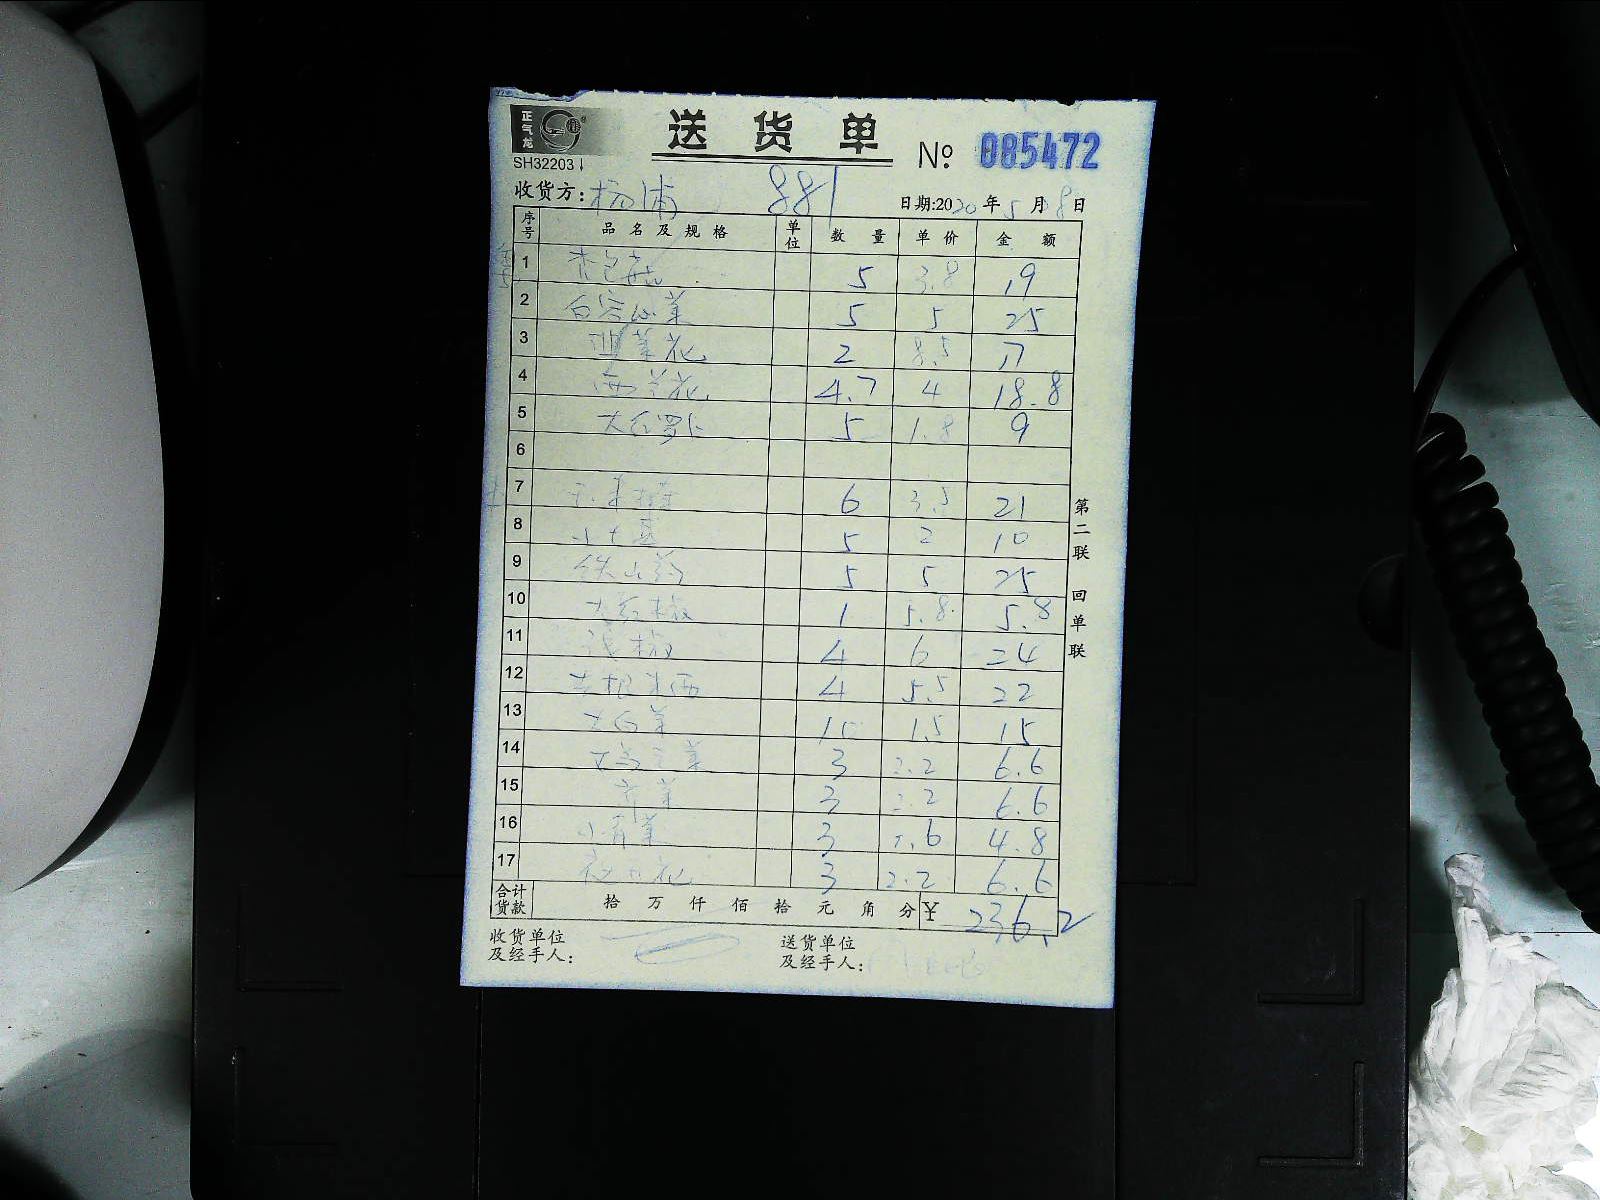 正气龙
SH32203
送货单
№ 085472
收货方: 杨浦 881 日期:2020年5月8日
序号 品名及规格 单位 数量 单价 金额
1 杏包菇 5 3.8 19
2 白 菜 5 5 25
3 韭菜花 2 8.5 17
4 西兰花 4.7 4 18.8
5 大红罗卜 5 1.8 9
6
7 6 3.5 21
8 小土豆 5 2 10
9 铁山药 5 5 25
10 大红椒 1 5.8 5.8
11 线椒 4 6 24
12 杏根 西 4 5.5 22
13 大白菜 10 1.5 15
14 菜 3 2.2 6.6
15 芹菜 3 2.2 6.6
16 小青菜 3 1.6 4.8
17 花 3 2.2 6.6
合计货款 拾 万 仟 佰 拾 元 角 分 ¥ 236.2
收货单位及经手人:
送货单位及经手人:
第二联 回单联